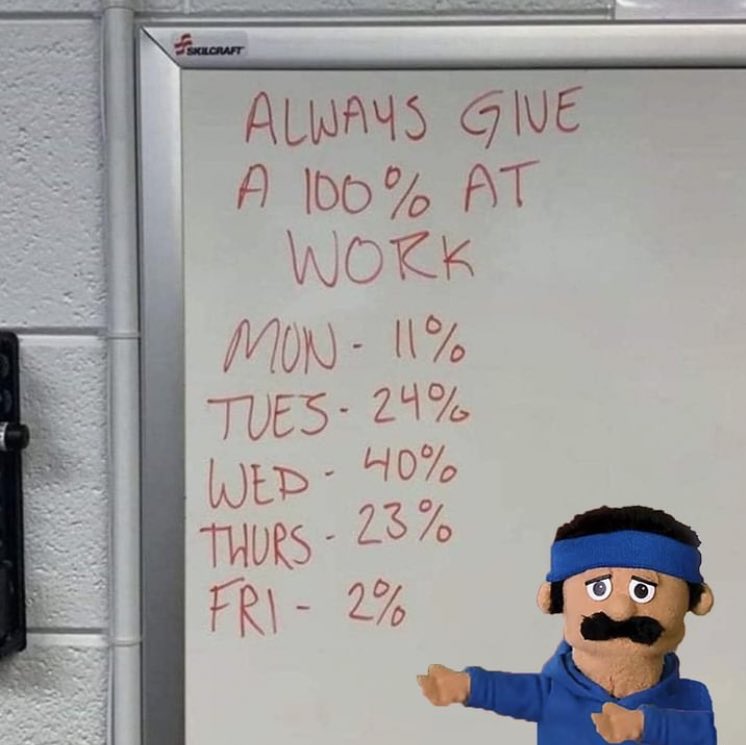 SKILCRAFT
ALWAYS GIVE
A 100% AT
WORK
MON - 11%
TUES - 24%
WED - 40%
THURS - 23%
FRI - 2%